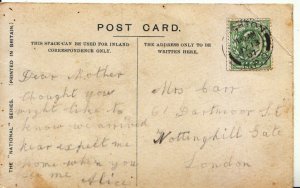 POST CARD.
THIS SPACE CAN BE USED FOR INLAND
CORRESPONDENCE ONLY.
THE ADDRESS ONLY TO BE
WRITTEN HERE.
THE "NATIONAL" SERIES. (PRINTED IN BRITAIN.)
Dear Mother
thought you
might like to
know we arrived
expect me
home when you
see me
Alice
Mrs Carr
61 Dartmoor St
Nottinghill Gate
London